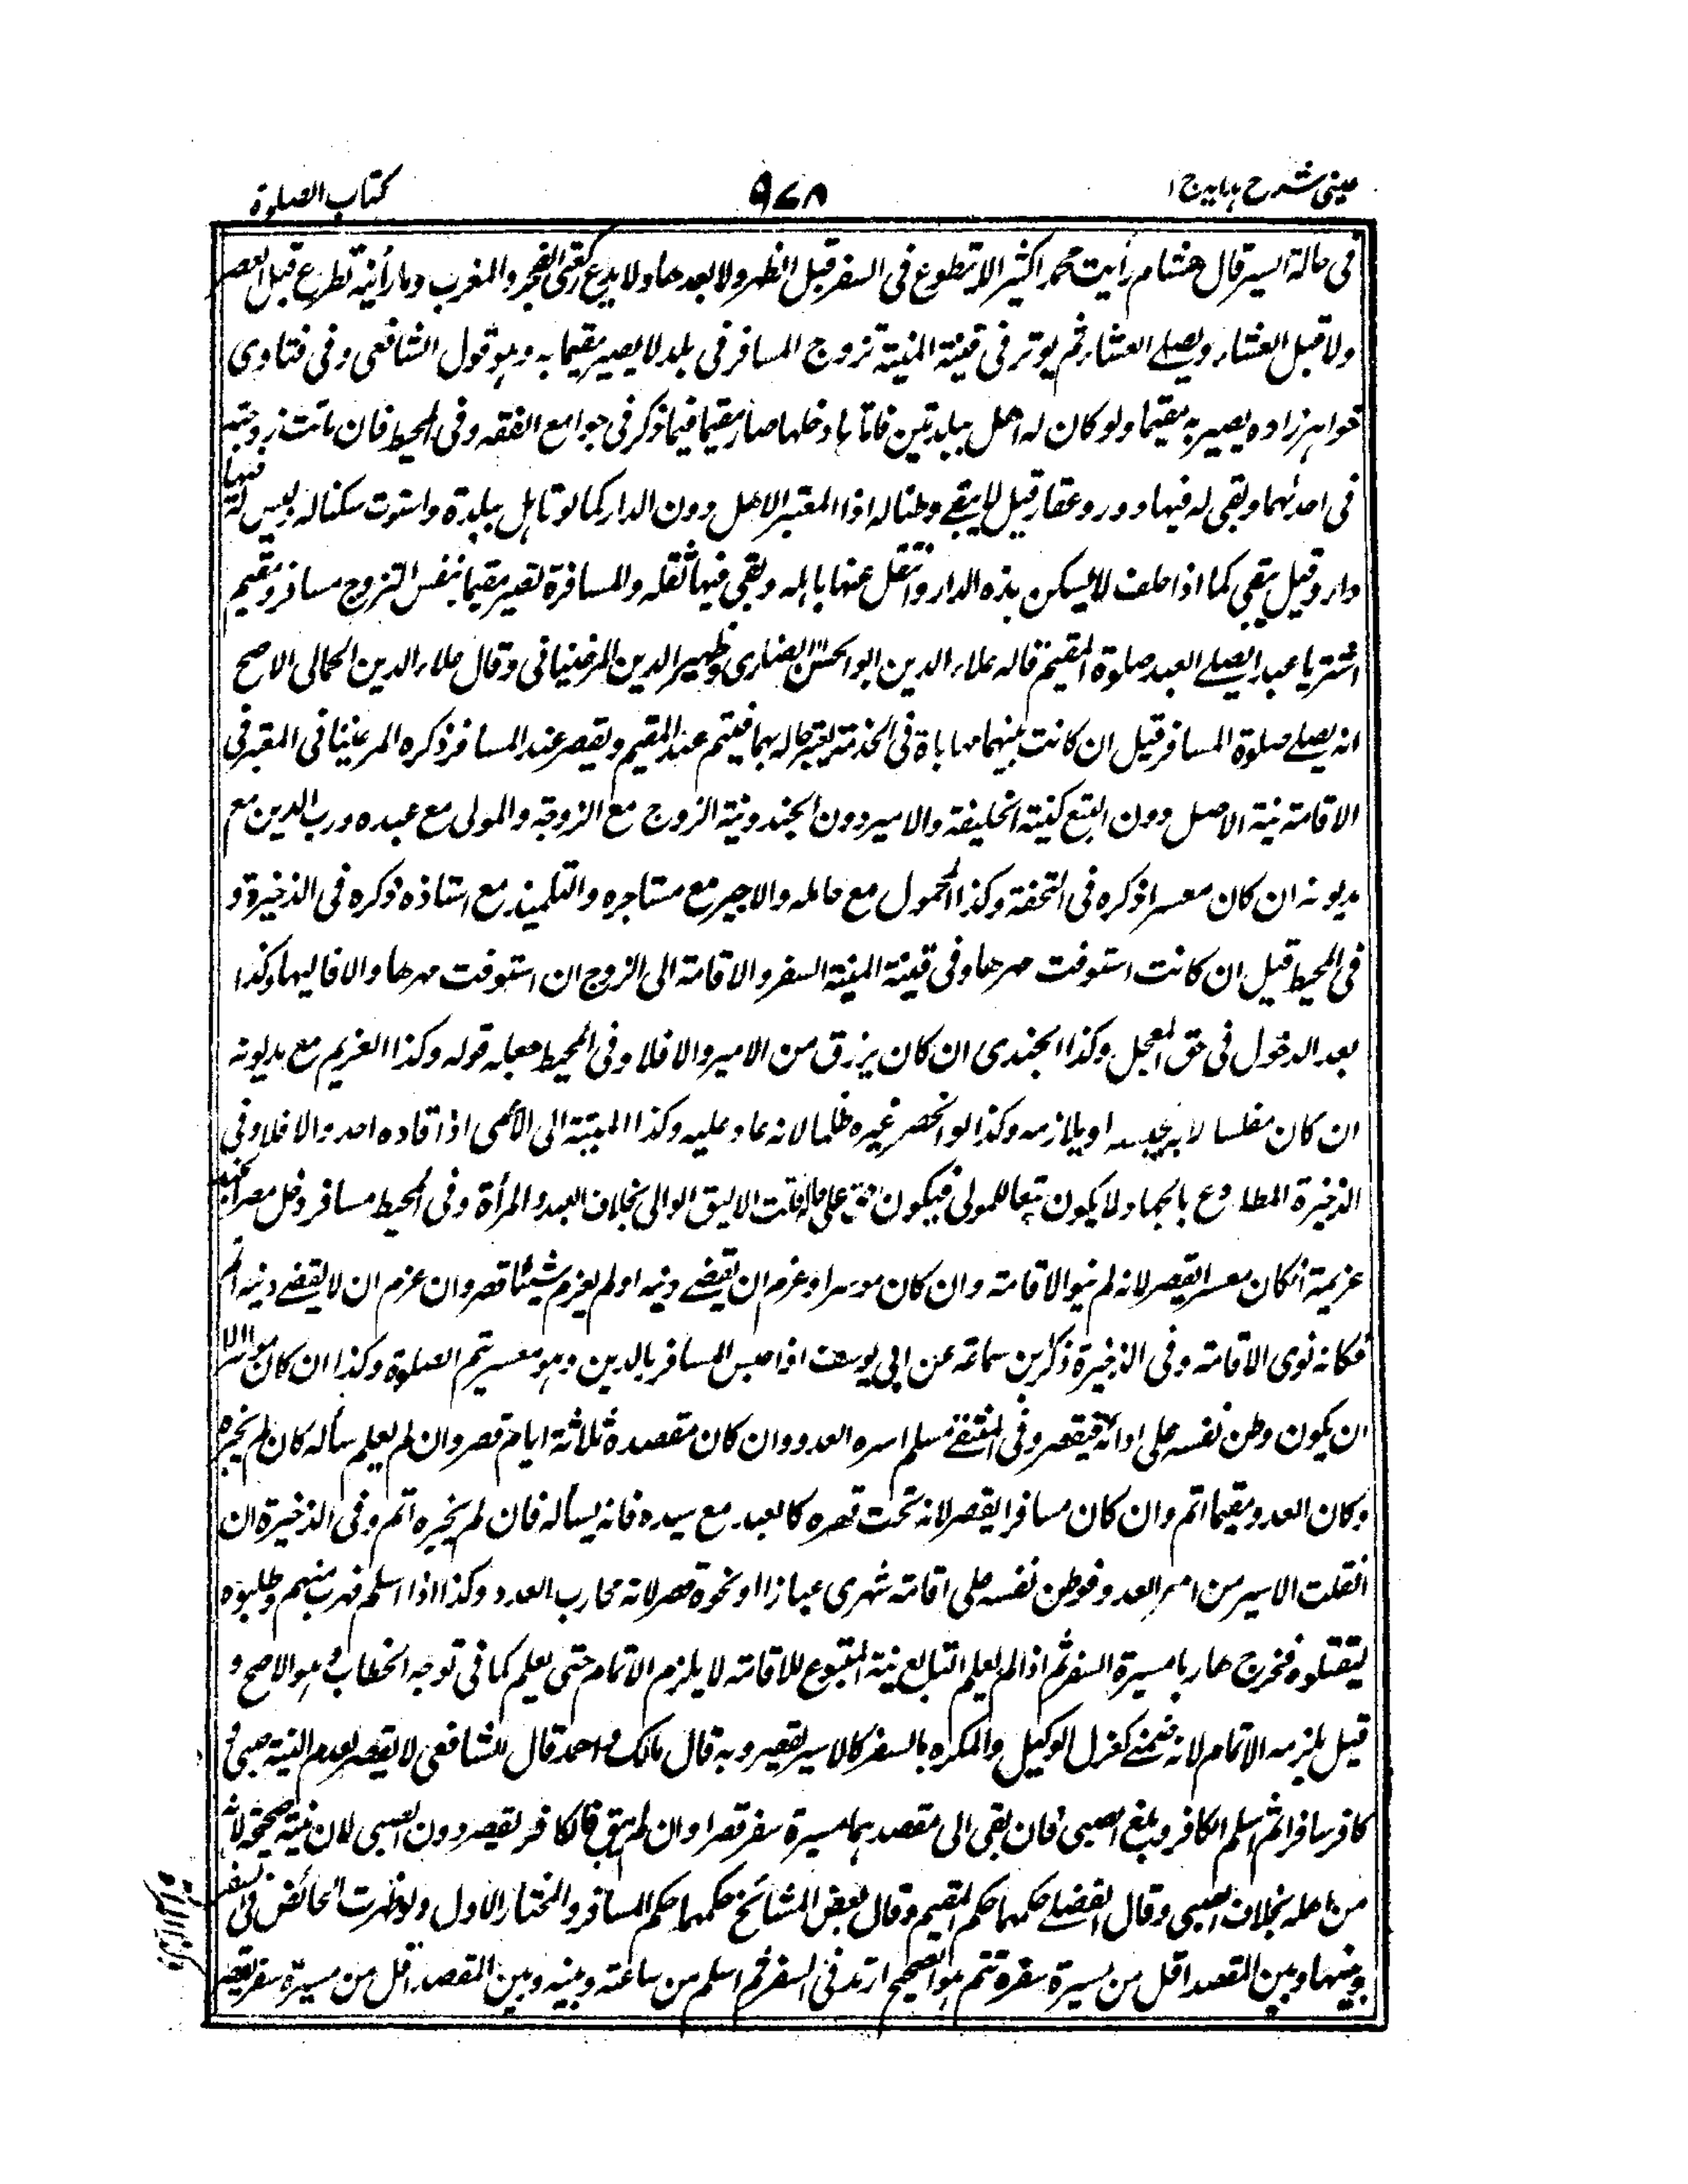 عینی شرح ہدایہ ج ۱
۹۷۸
کتاب الصلوة
فی حالة السیر قال هشام رأیت محمدا کثیرا لا یتطوع فی السفر قبل الظهر ولا بعدها ولا یدع رکعتی الفجر والمغرب وما رأیته تطوع قبل العصر
ولا قبل العشاء ویصلے العشاء ثم یوتر فی قنیة المنیة تزوج المسافر فی بلد لا یصیر مقیما به وہو قول الشافعی وفی فتاوی
خواہر زادہ یصیر بہ مقیما ولو کان لہ اهل ببلدتین فاتاہا دخلها صار مقیما فیما ذکر فی جوامع الفقه وفی المحیط فان ماتت زوجته
فی احدٰہما وبقی له فیها دور وعقار قیل لا یبقے وطنا له اذا المعتبر الاهل دون الدار کما لو تاہل ببلدة واستوت سکناله ولیس له فیها
دار وقیل یبقی کما اذا حلف لا یسکن ہذہ الدار وانتقل عنها باہله وبقی فیها ثقله والمسافرة تصیر مقیما بنفس التزوج مسافر ومقیم
اشتریا عبدا یصلے العبد صلوة المقیم قاله علاء الدین ابو الحسن وظهیر الدین المرغینانی وقال علاء الدین الاصح
انه یصلے صلوة المسافر قیل ان کانت بینهما مهایاة فی الخدمة یعتبر حاله بهما فیتم عند المقیم ویقصر عند المسافر ذکرہ المرغینانی المعتبر فی
الاقامة نیة الاصل دون التبع کنیة الخلیفة والامیر دون الجند ونیة الزوج مع الزوجة والمولی مع عبده ورب الدین مع
مدیونه ان کان معسرا ذکرہ فی التحفة وکذا المحمول مع حامله والاجیر مع مستاجره والتلمیذ مع استاذہ ذکرہ فی الذخیرة و
فی المحیط قیل ان کانت استوفت مهرها وفی قنیة المنیة السفر والاقامة الی الزوج ان استوفت مهرها والا فالیها وکذا
بعد الدخول فی حق المعجل وکذا الجندی ان کان یرزق من الامیر والا فلا وفی المحیط جعله قوله وکذا الغریم مع مدیونه
ان کان مفلسا لانه یحبسه او یلازمه وکذا لو غیره ظلما لانه عاد علیه وکذا النیة الی الاعمی اذا قاده احد والا فلا وفی
الذخیرة المطاوع بالجهاد لا یکون تبعا للمولی فیکون قلت الالیق الوالی بخلاف العبد والمرأة وفی المحیط مسافر دخل مصرا
عزیمة انکان معسرا یقصر لانه لم ینو الاقامة وان کان موسرا وعزم ان یقضے دینه اولم یعزم شیئا قصر وان عزم ان لا یقضے دینه اتم
فکانه نوی الاقامة وفی الذخیرة ذکر بن سماعة عن ابی یوسف اذا حبس المسافر بالدین وہو معسر یتم الصلوة وکذا ان کان موسرا الا
ان یکون وطن نفسه علی ادائه فیقصر وفی المنتقے مسلم اسره العدو وان کان مقصده ثلاثة ایام قصر وان لم یعلم سأله کان لم یخبره
وکان العدو مقیما اتم وان کان مسافرا یقصر لانه تحت قهره کالعبد مع سیده فانه یسأله فان لم یخبره اتم وفی الذخیرة ان
انفلت الاسیر من العدو فوطن نفسه علی اقامة شهر فی غار او نحوه قصر لانه محارب العدو وکذا اذا اسلم فهرب منهم وطلبوه
لیقتلوه فخرج هاربا مسیرة السفر ثم اذا لم یعلم التابع نیة المتبوع للاقامة لا یلزم الاتمام حتی یعلم کما فی توجه الخطاب وہو الاصح و
قیل یلزمه الاتمام لانه ضمنے کعزل الوکیل والمکره بالسفر کالاسیر یقصر وبه قال مالک واحمد قال الشافعی لا یقصر لعدم النیة صبی و
کافر سافرا ثم اسلم الکافر وبلغ الصبی فان بقی الی مقصدہما مسیرة سفر قصرا وان لم یبق فالکافر یقصر دون الصبی لان نیته صحیحة لانه
من اهله بخلاف الصبی وقال الفضلے حکمهما حکم المقیم وقال بعض المشائخ حکمهما حکم المسافر والمختار الاول ولو طهرت الحائض فی السفر
وبینها وبین المقصد اقل من مسیرة سفرة تتم ہو الصحیح ارتد فی السفر ثم اسلم من ساعته وبینه وبین المقصد اقل من مسیرة سفر یقصر